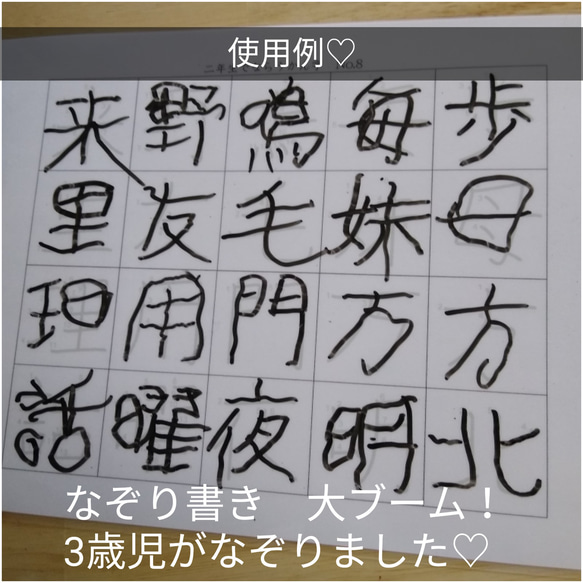 使用例♡
No.8
歩母方北
毎妹万明
鳴毛門夜
野友用曜
来里理話
なぞり書き　大ブーム！
3歳児がなぞりました♡